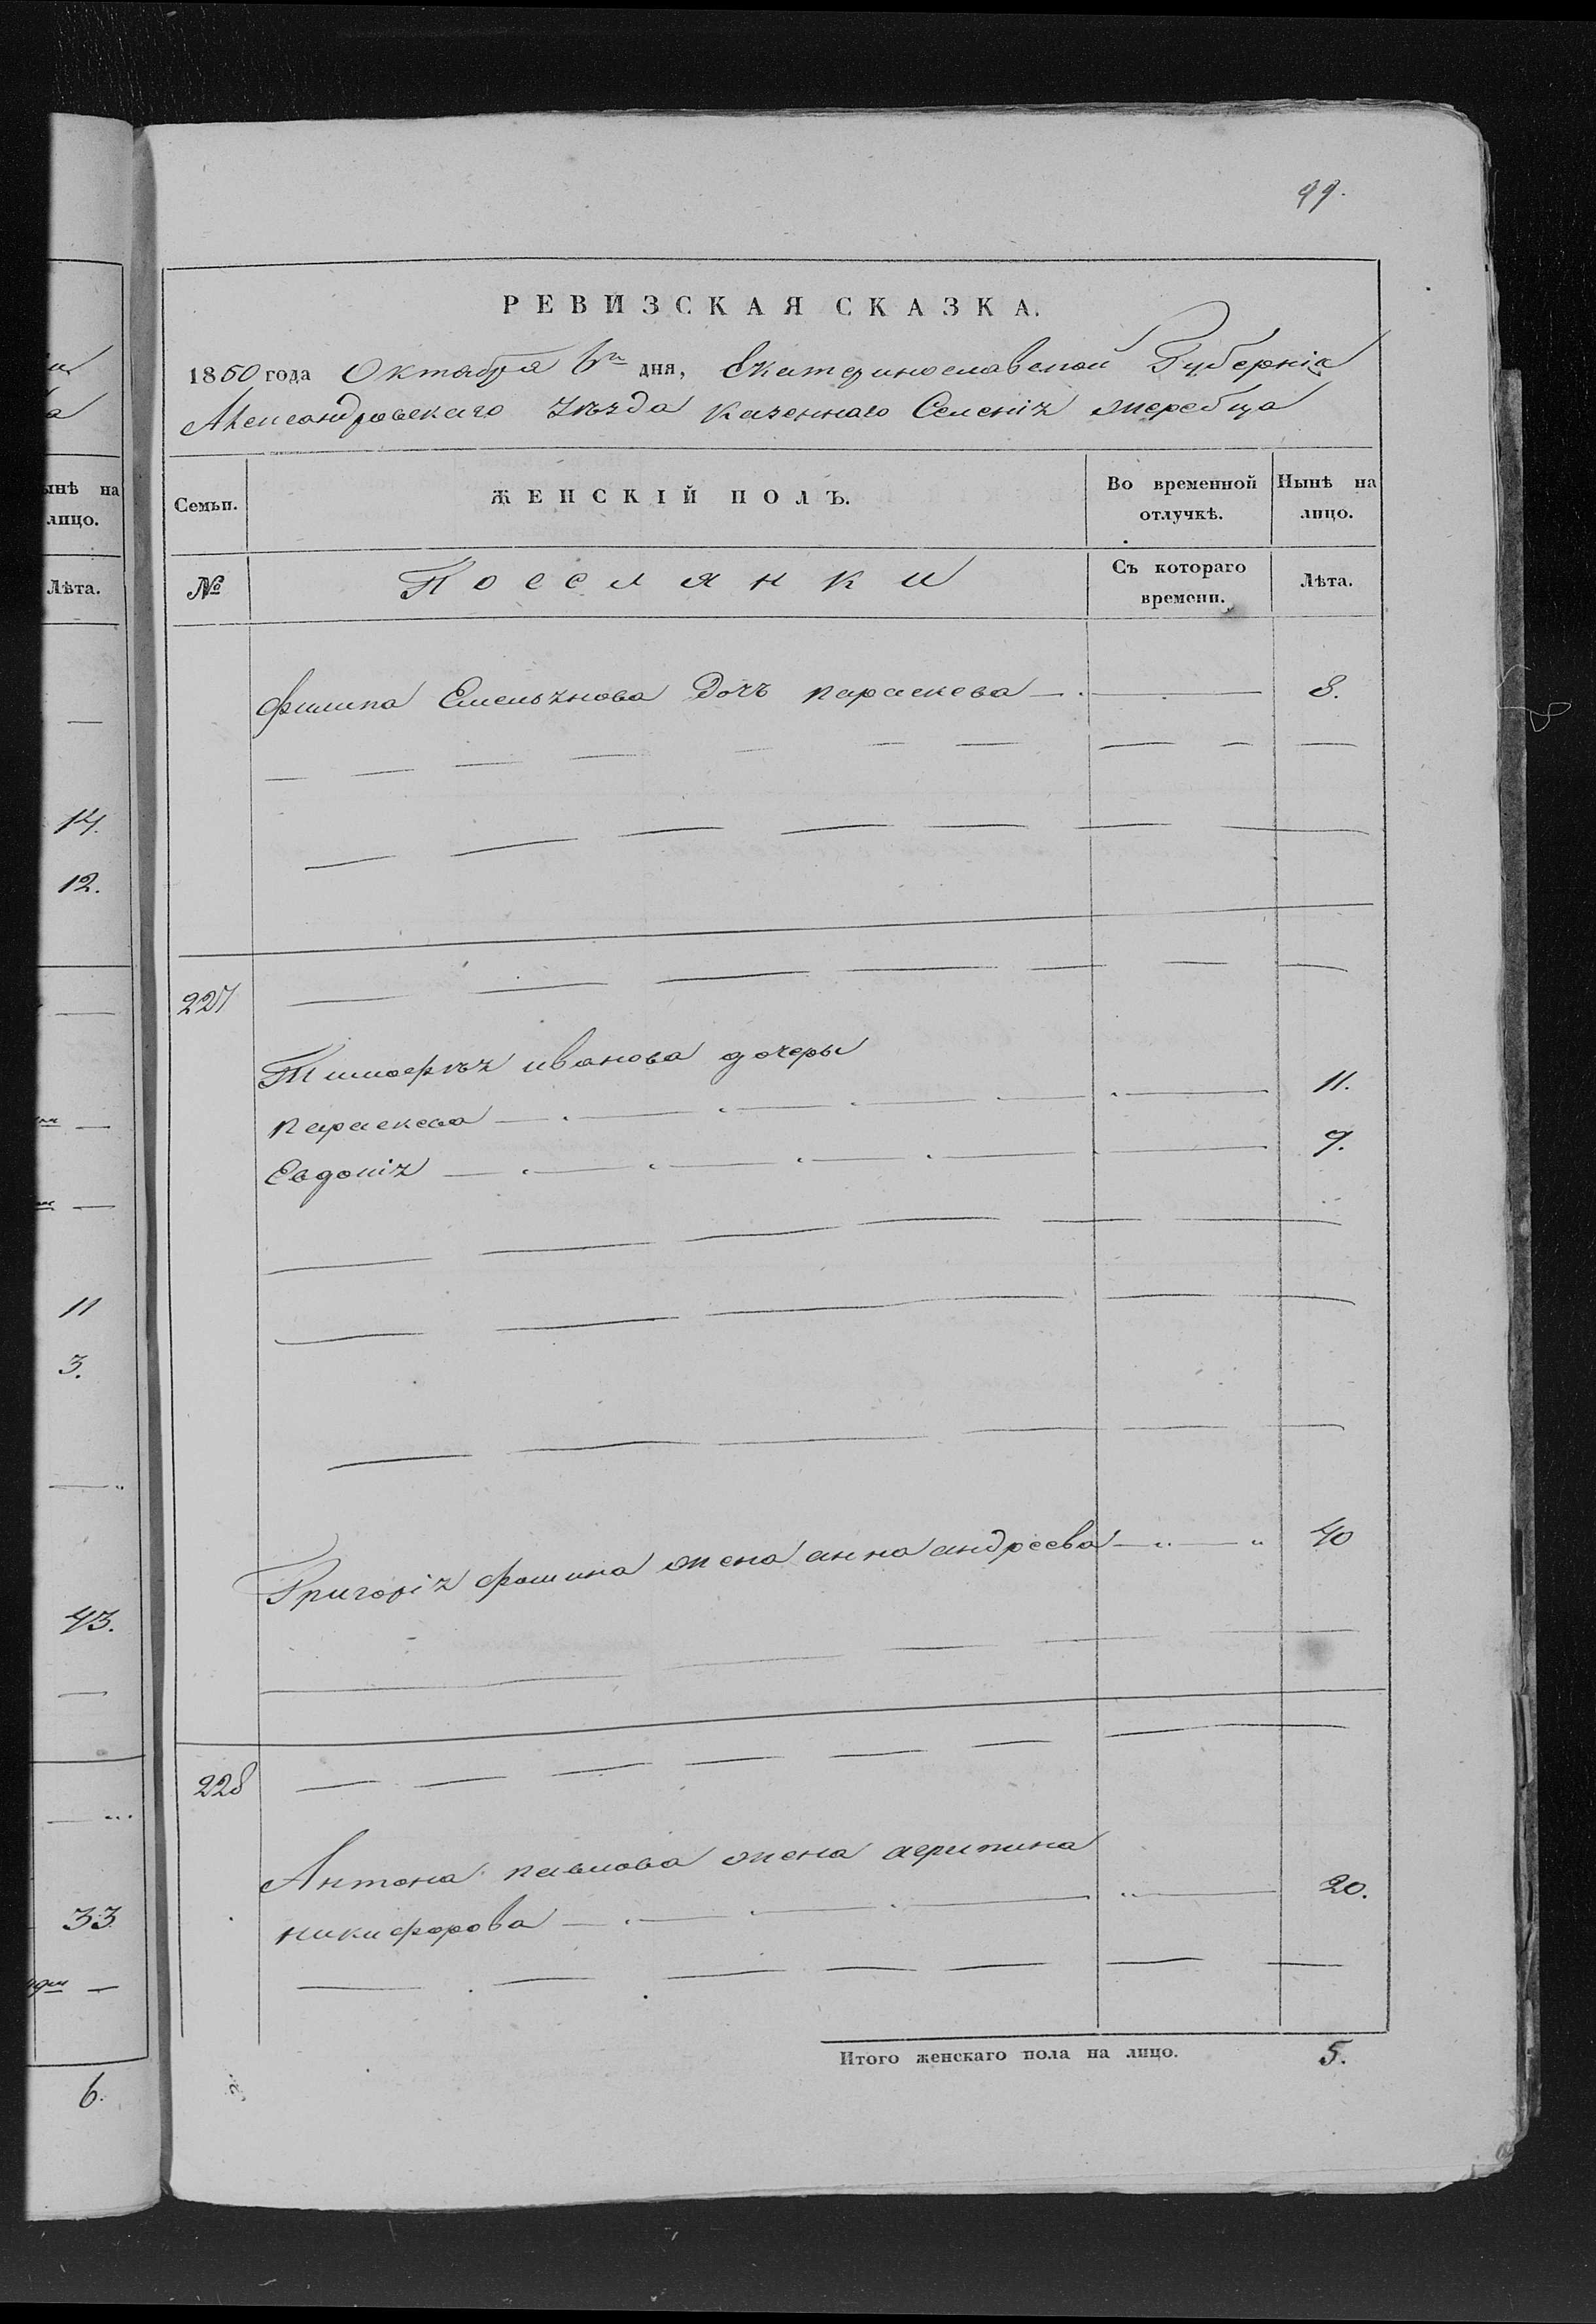 99.
РЕВИЗСКАЯ СКАЗКА.
1850 года Октября 6го дня, Екатеринославской Губерніи
Александровскаго уѣзда казеннаго Селенія жеребца
ынѣ на
лицо.
Семьи.
ЖЕНСКІЙ ПОЛЪ.
Во временной
отлучкѣ.
Нынѣ на
лицо.
Лѣта.
№
Посселянки
Съ котораго
времени.
Лѣта.
филипа Емельянова Дочъ параскева 8.
14.
12.
227
Тимофѣя иванова дочеры
параскева 11.
Евдокія 9.
11
3.
Григорія фомина жена анна андреева 40
43.
228
Антона павлова жена агрипина
никифорова 20.
33
Итого женскаго пола на лицо. 5.
6.